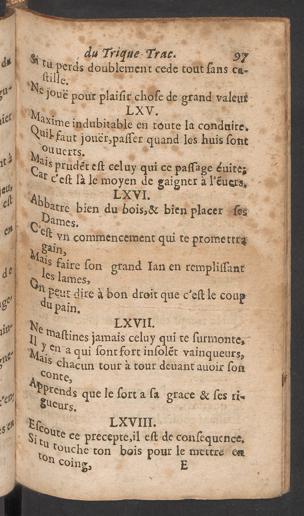 du Trique-Trac. 97
Si tu perds doublement cede tout sans ca-
stille.
Ne jouë pour plaisir chose de grand valeur
LXV.
Maxime indubitable en toute la conduite.
Quil faut jouër, passer quand les huis sont
ouuerts.
Mais prudẽt est celuy qui ce passage éuite;
Car c'est là le moyen de gaigner à l'éuers.
LXVI.
Abbatre bien du bois, & bien placer ses
Dames.
C'est vn commencement qui te promettra
gain,
Mais faire son grand Ian en remplissant
les lames,
On peut dire à bon droit que c'est le coup
du pain.
LXVII.
Ne mastines jamais celuy qui te surmonte,
Il y en a qui sont fort insolẽt vainqueurs,
Mais chacun tour à tour deuant auoir son
conte,
Apprends que le sort a sa grace & ses ri-
gueurs.
LXVIII.
Escoute ce precepte, il est de consequence.
Si tu touche ton bois pour le mettre en
ton coing,
E